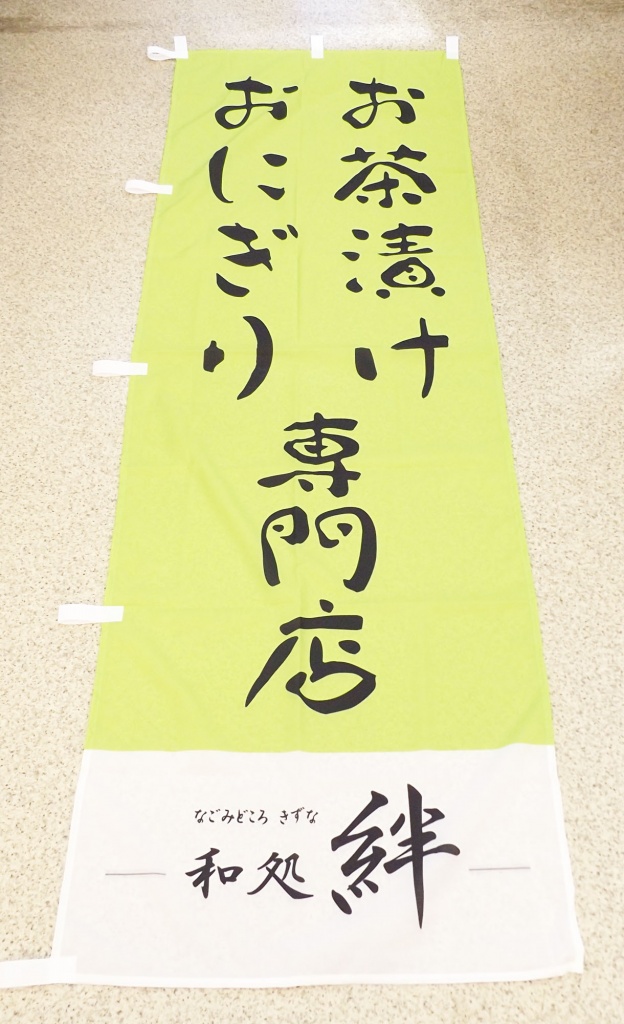 お茶漬け
おにぎり
専門店
なごみどころ きずな
和処 絆